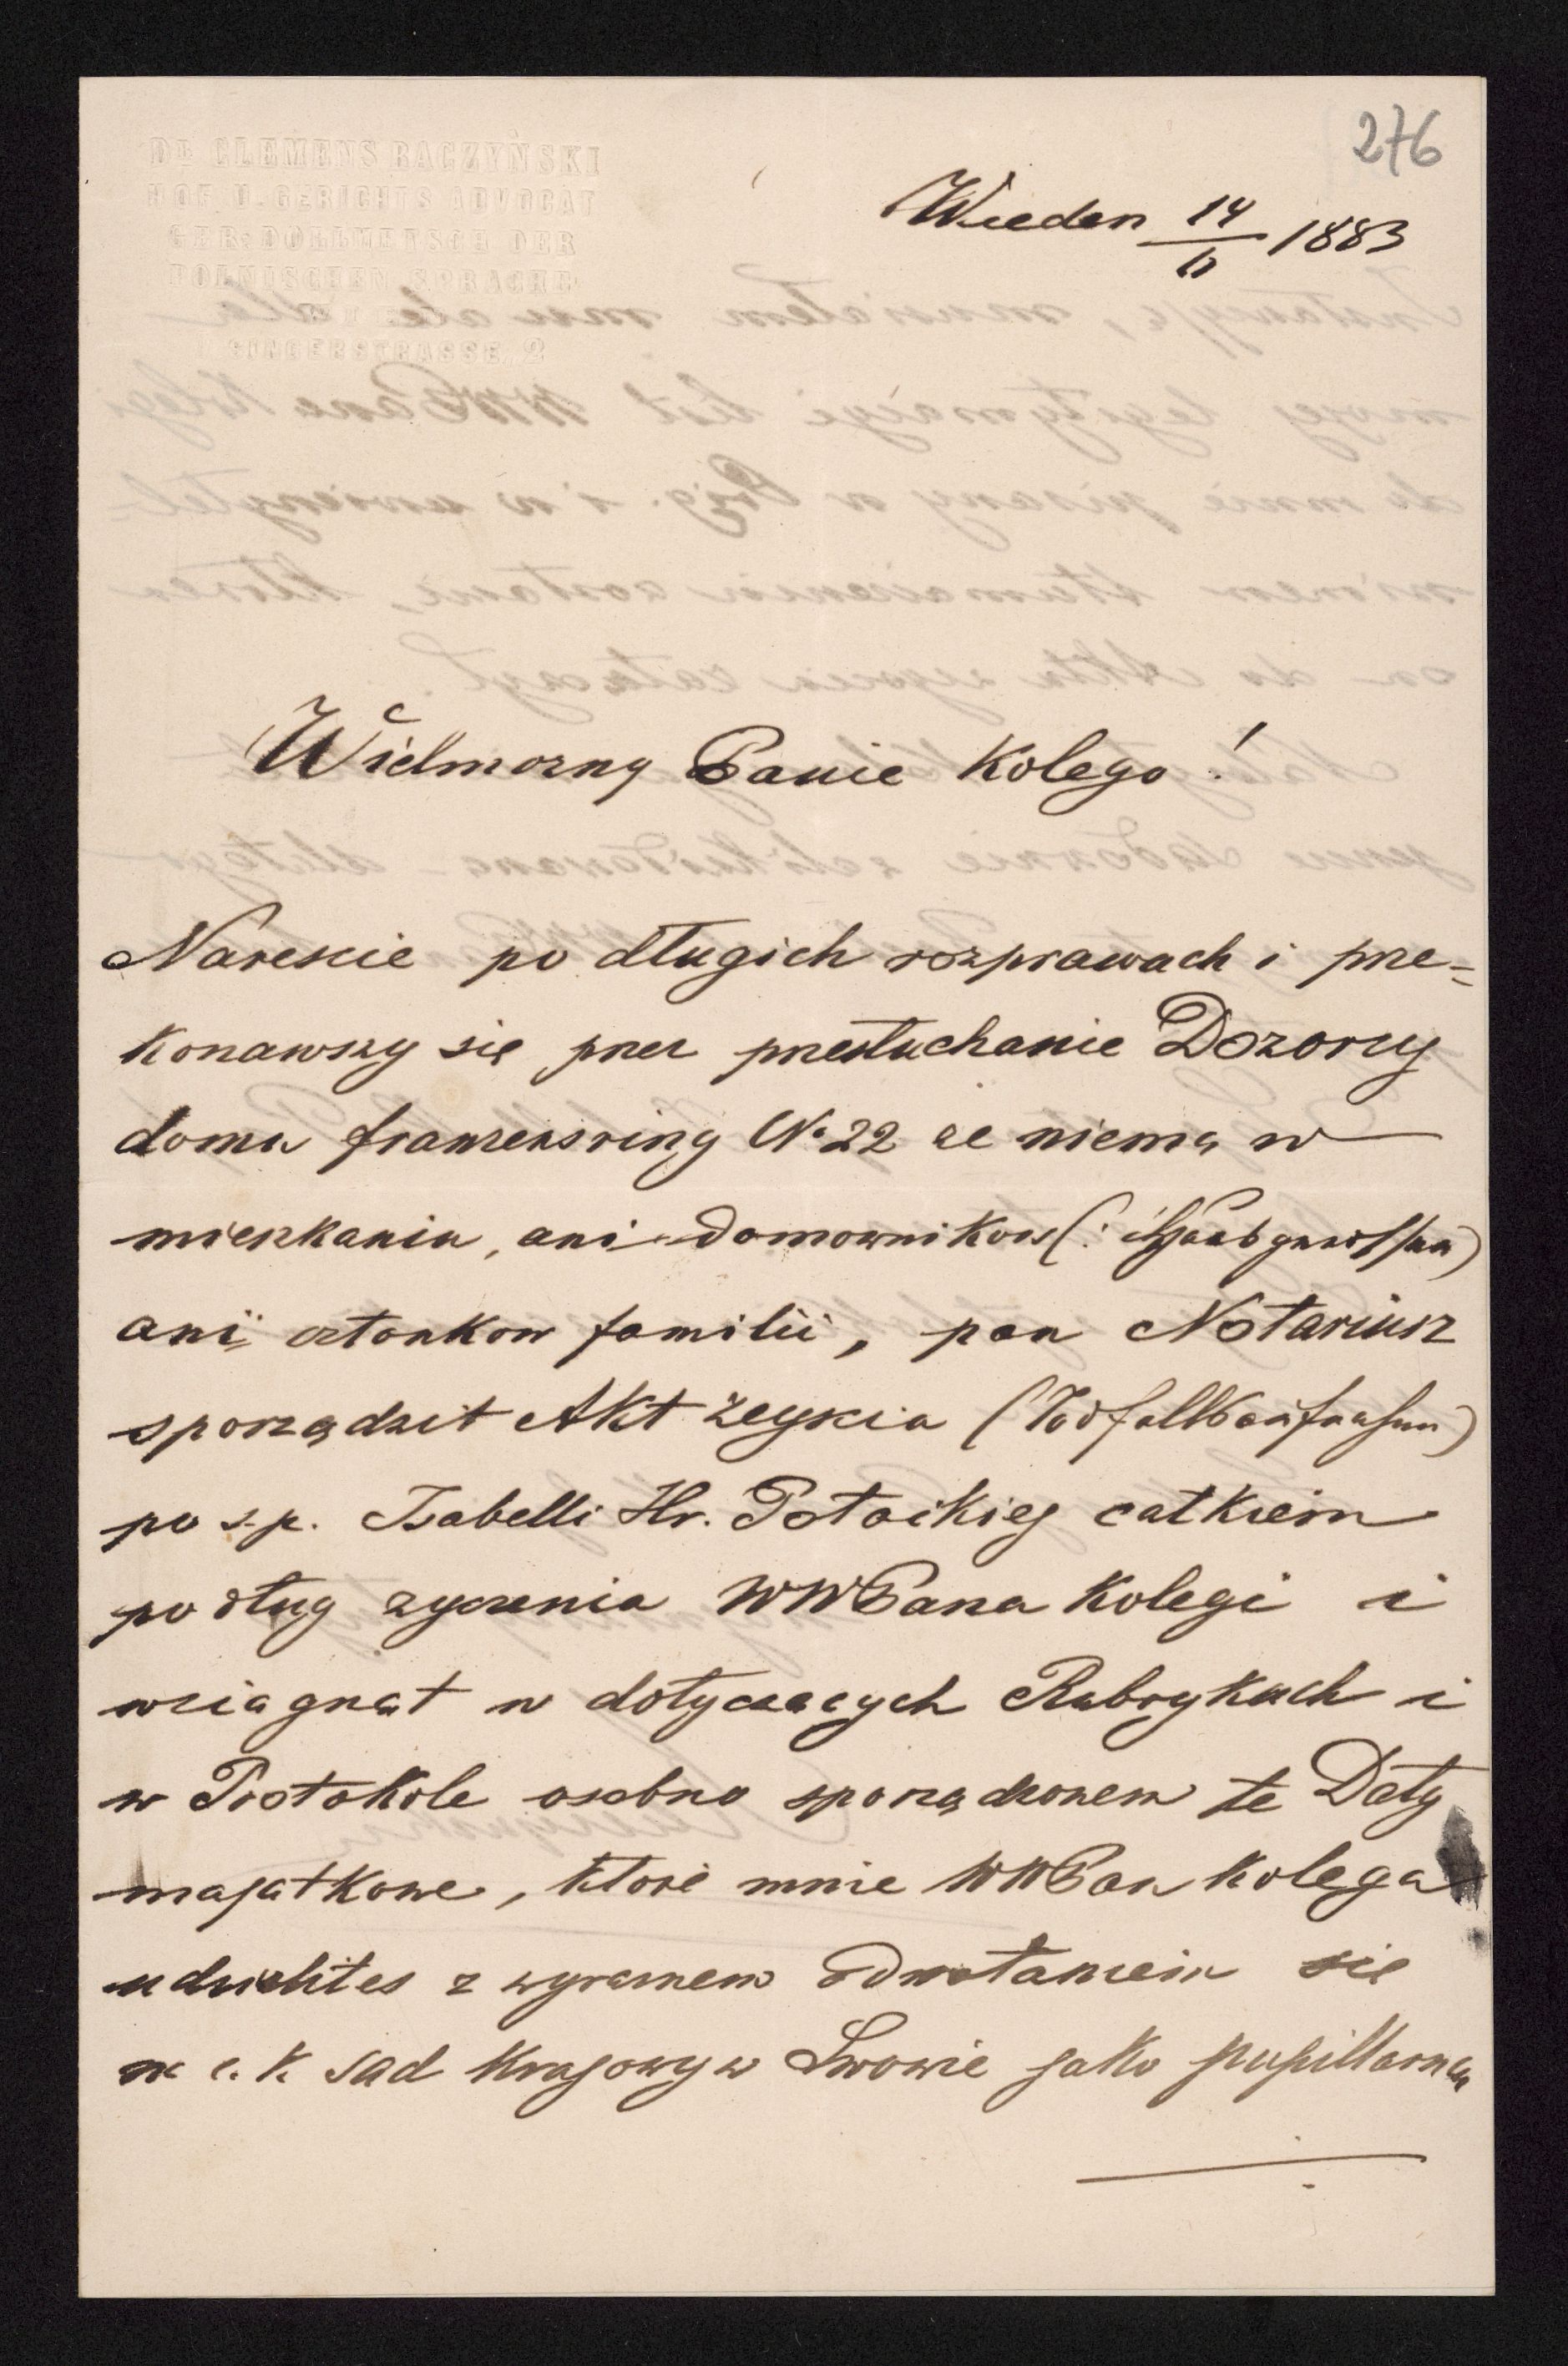 276
DR CLEMENS RACZYŃSKI
HOF U. GERICHTS ADVOCAT
GER. DOLLMETSCH DER
POLNISCHEN SPRACHE
WIEN
SINGERSTRASSE, 2
Wieden 14/11 1883
Wielmozny Panie Kolego!
Narescie po długich rozprawach i prze-
konawszy się przez przesłuchanie Dozorcy
domu franzensring No 22 ze niema w
mieszkaniu, ani domownikow (: Hausgenossen)
ani członkow familii, pan Notariusz
sporządzit Akt zeyscia (Todfallsaufnahme)
po s.p. Isabelli Hr. Potockiej całkiem
podług zyczenia WWPana Kolegi i
wciagnat w dotyczacych Rubrykach i
w Protokole osobno sporządzonem te Daty
majatkowe, ktore mnie WWPan Kolega
udzielites z wyraznem odwołaniem się
na c. k. sad Krajowy w Lwowie jako pupillarną